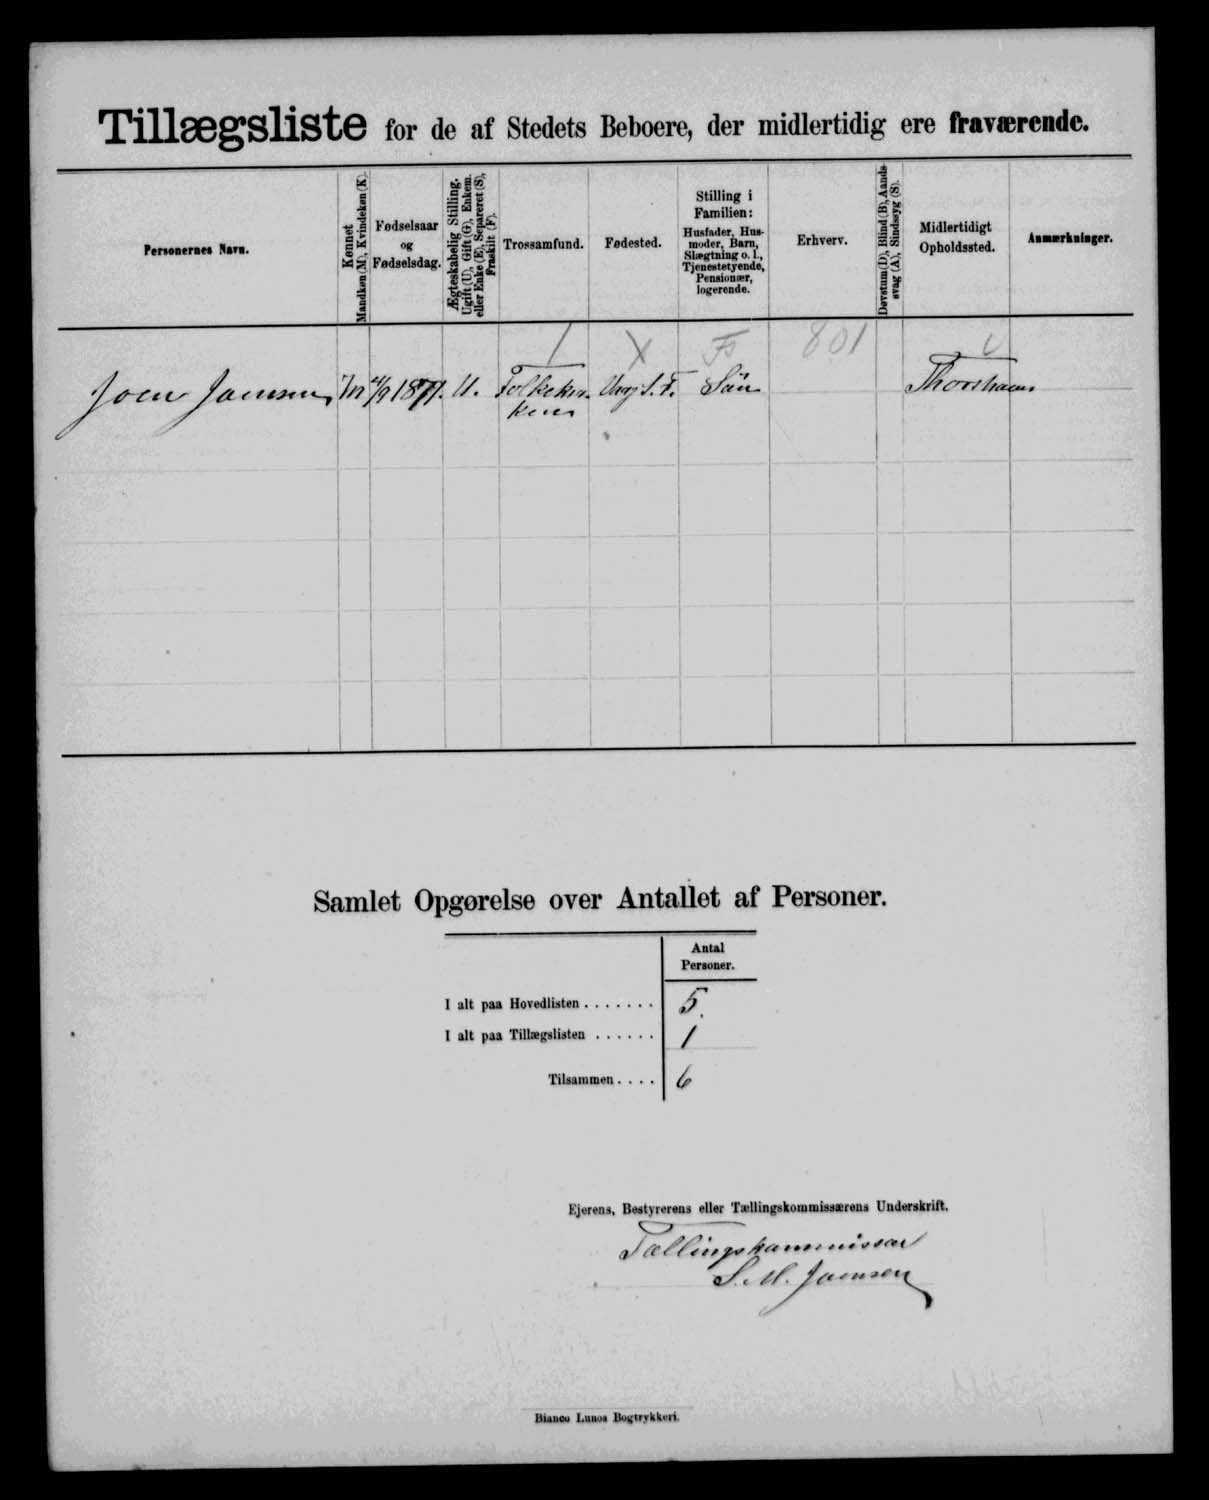 Tillægsliste for de af Stedets Beboere, der midlertidig ere fraværende.
Personernes Navn.
Kønnet
Mandkøn (M), Kvindekøn (K).
Fødselsaar
og
Fødselsdag.
Ægteskabelig Stilling.
Ugift (U), Gift (G), Enkem.
eller Enke (E), Separeret (S),
Fraskilt (F).
Trossamfund.
Fødested.
Stilling i
Familien:
Husfader, Hus-
moder, Barn,
Slægtning o. l.,
Tjenestetyende,
Pensionær,
logerende.
Erhverv.
Døvstum (D), Blind (B), Aands-
svag (A), Sindssyg (S).
Midlertidigt
Opholdssted.
Anmærkninger.
801
Joen Joensen M 1871. U. Folkekir- S. F. Sön Thorshavn
ken
Samlet Opgørelse over Antallet af Personer.
Antal
Personer.
I alt paa Hovedlisten . . . . . . . 5.
I alt paa Tillægslisten . . . . . . 1
Tilsammen . . . . 6
Ejerens, Bestyrerens eller Tællingskommissærens Underskrift.
Tællingskommissær
S. M. Joensen
Bianco Lunos Bogtrykkeri.